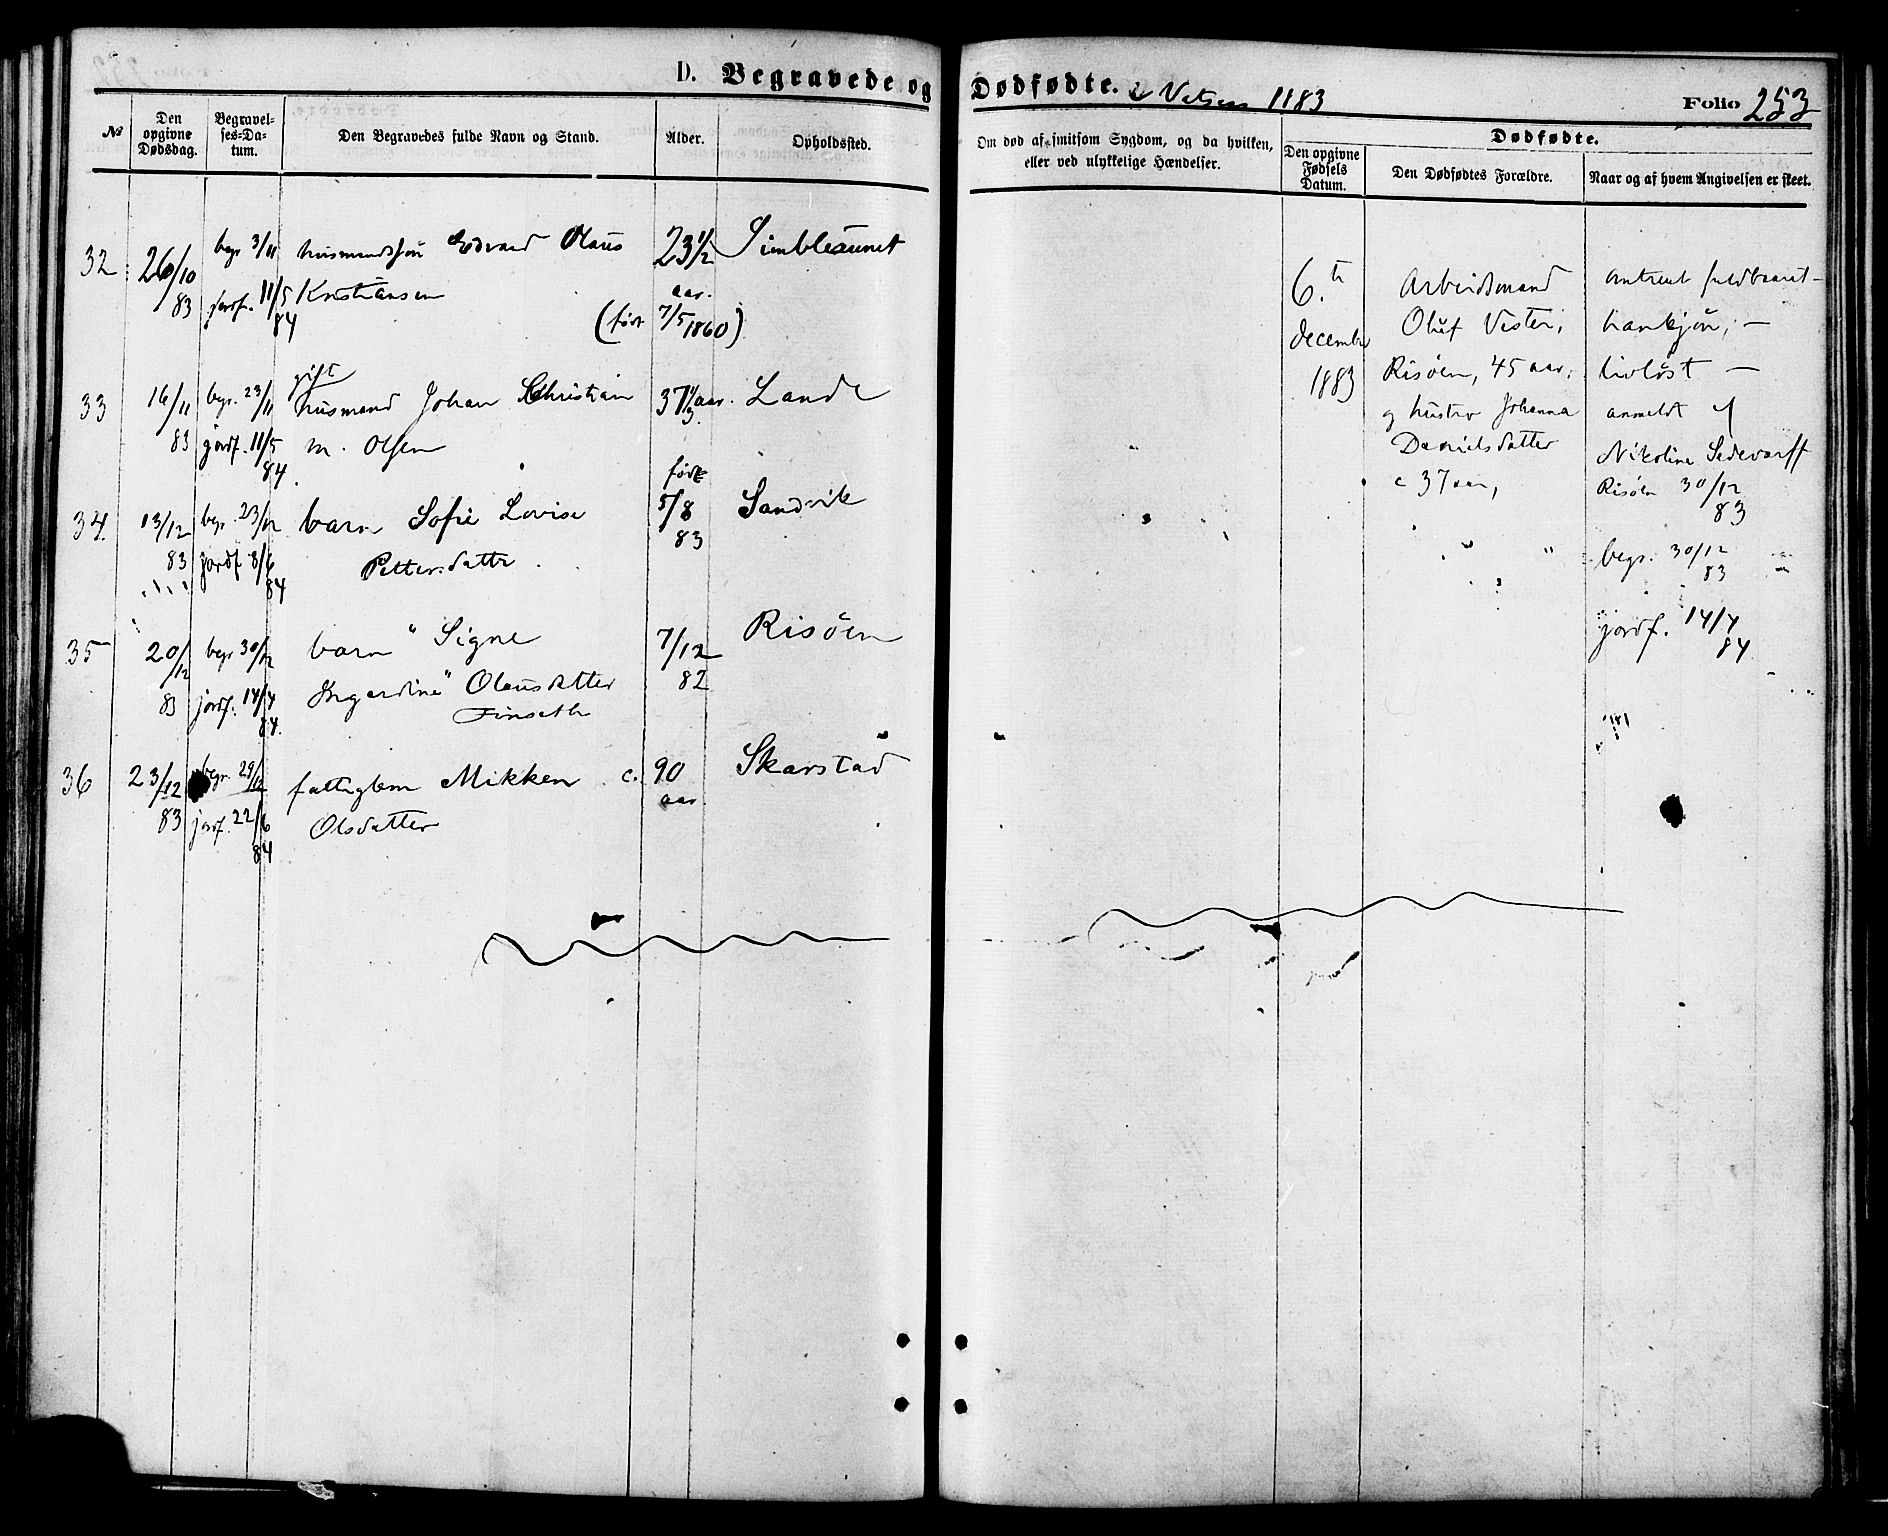 D. Begravede og Dødfødte. 1183
Folio 253
№
Den opgivne Dødsdag.
Begravel-
ses-Da-
tum.
Den Begravedes fulde Navn og Stand.
Alder.
Opholdssted.
Om død af smitsom Sygdom, og da hvilken,
eller ved ulykkelige Hændelser.
Dødfødte.
Den opgivne
Fødsels
Datum.
Den Dødfødtes Forældre.
Naar og af hvem Angivelsen er skeet.
32 26/10 begr 3/11 husmandssøn Edvard Olaus 23 1/2 Simbleaunet
83 jordf. 11/5 Kristiansen aar.
84 (født 7/5 1860)
gift
33 16/11 begr. 23/11 husmand Johan Christian 37 1/3 aar. Lande
83 jordf. 11/5 m. Olsen
84.
født
34. 13/12 begr. 23/12 barn Sofie Lovise 5/8 Sandvik
83 jordf 8/6 Pettersdatter 83
84
35 20/12 begr 30/12 barn "Signe 7/12 Risöen
83 jordf. 14/4 Ingardine" Olausdatter 82
84. Finseth
36 23/12 begr. 29/12 fattiglem Mikken c. 90 Skarstad
83 jordf. 22/6 Olsdatter aar.
84
6.te Arbeidsmand omtrent fuldbaaret –
december Oluf Vester, hankjön, –
1883 Risöen, 45 aar, livlöst –
og hustro Johanna anmeldt af
Danielsdatter Nikoline Sedevarff
c 37 aar, Risöen 30/12
83
begr. 30/12
83
jordf. 14/4
84.